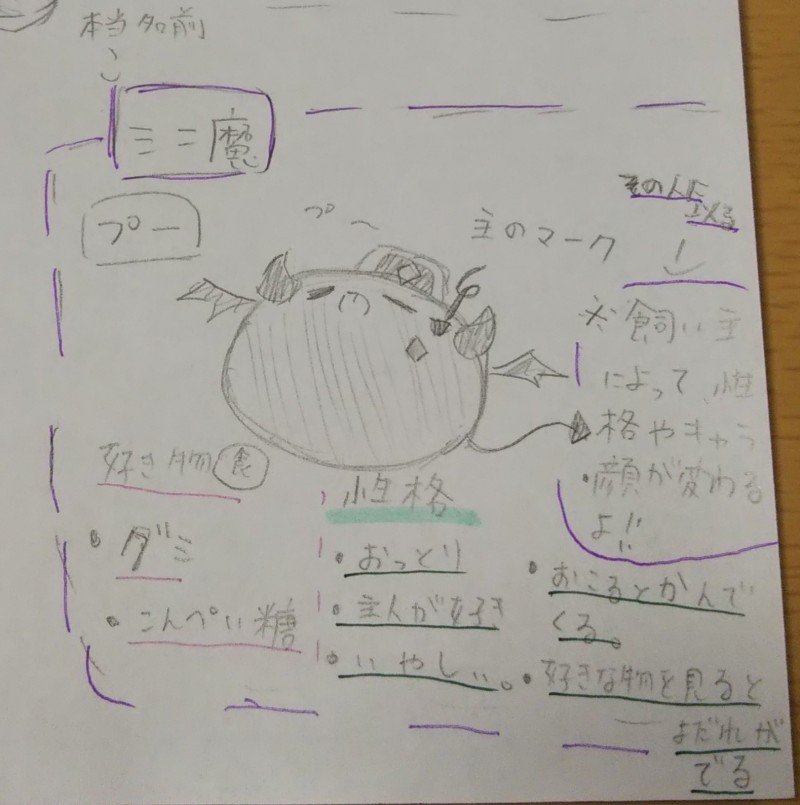 本当名前
ミニ魔
プー
プ〜
主のマーク
その人に
よる
※飼い主
によって、性
格やキャラ
・顔が変わる
よ!!
好き物 食
・グミ
・こんぺい糖
性格
・おっとり
・主人が好き
・いやしい。
・おこるとかんで
くる。
・好きな物を見ると
よだれが
でる